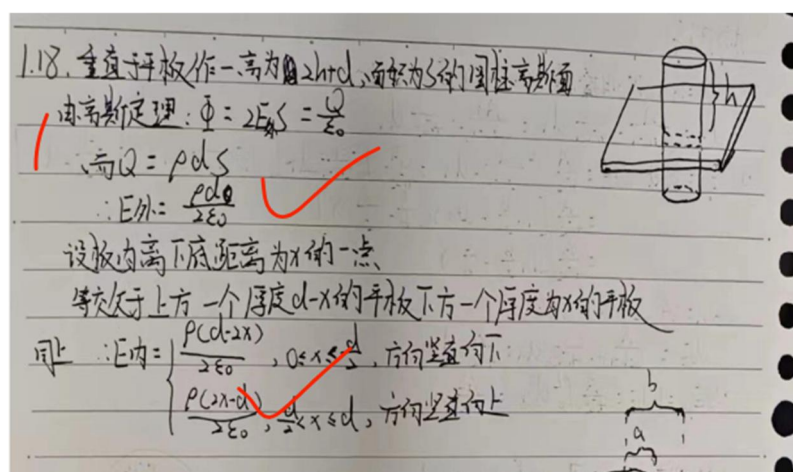 1.18. 垂直于平板作一高为2h+d,面积为S的圆柱高斯面
h
由高斯定理: Φ = 2E外S = Q/ε0
而Q = ρdS
∴E外 = ρd/2ε0
设板内离下底距离为x的一点
等效于上方一个厚度d-x的平板下方一个厚度为x的平板
同上 ∴E内 = { ρ(d-2x)/2ε0 , 0≤x≤d/2 , 方向竖直向下
ρ(2x-d)/2ε0 , d/2<x≤d , 方向竖直向上
b
a